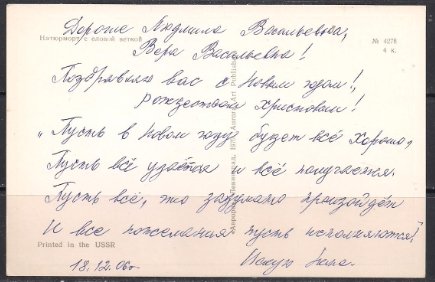 Дорогие Людмила Васильевна,
Вера Васильевна!
Натюрморт с еловой веткой
№ 4278
4 к.
Поздравляю вас с Новым годом!,
рождеством Христовым!
"Пусть в Новом году будет всё хорошо,
Пусть всё удаётся и всё получается.
Пусть всё, что задумано произойдёт
И все пожелания пусть исполняются!"
Printed in the USSR
18.12.06г.
"Аврора". Ленинград. Aurora Art Publishers